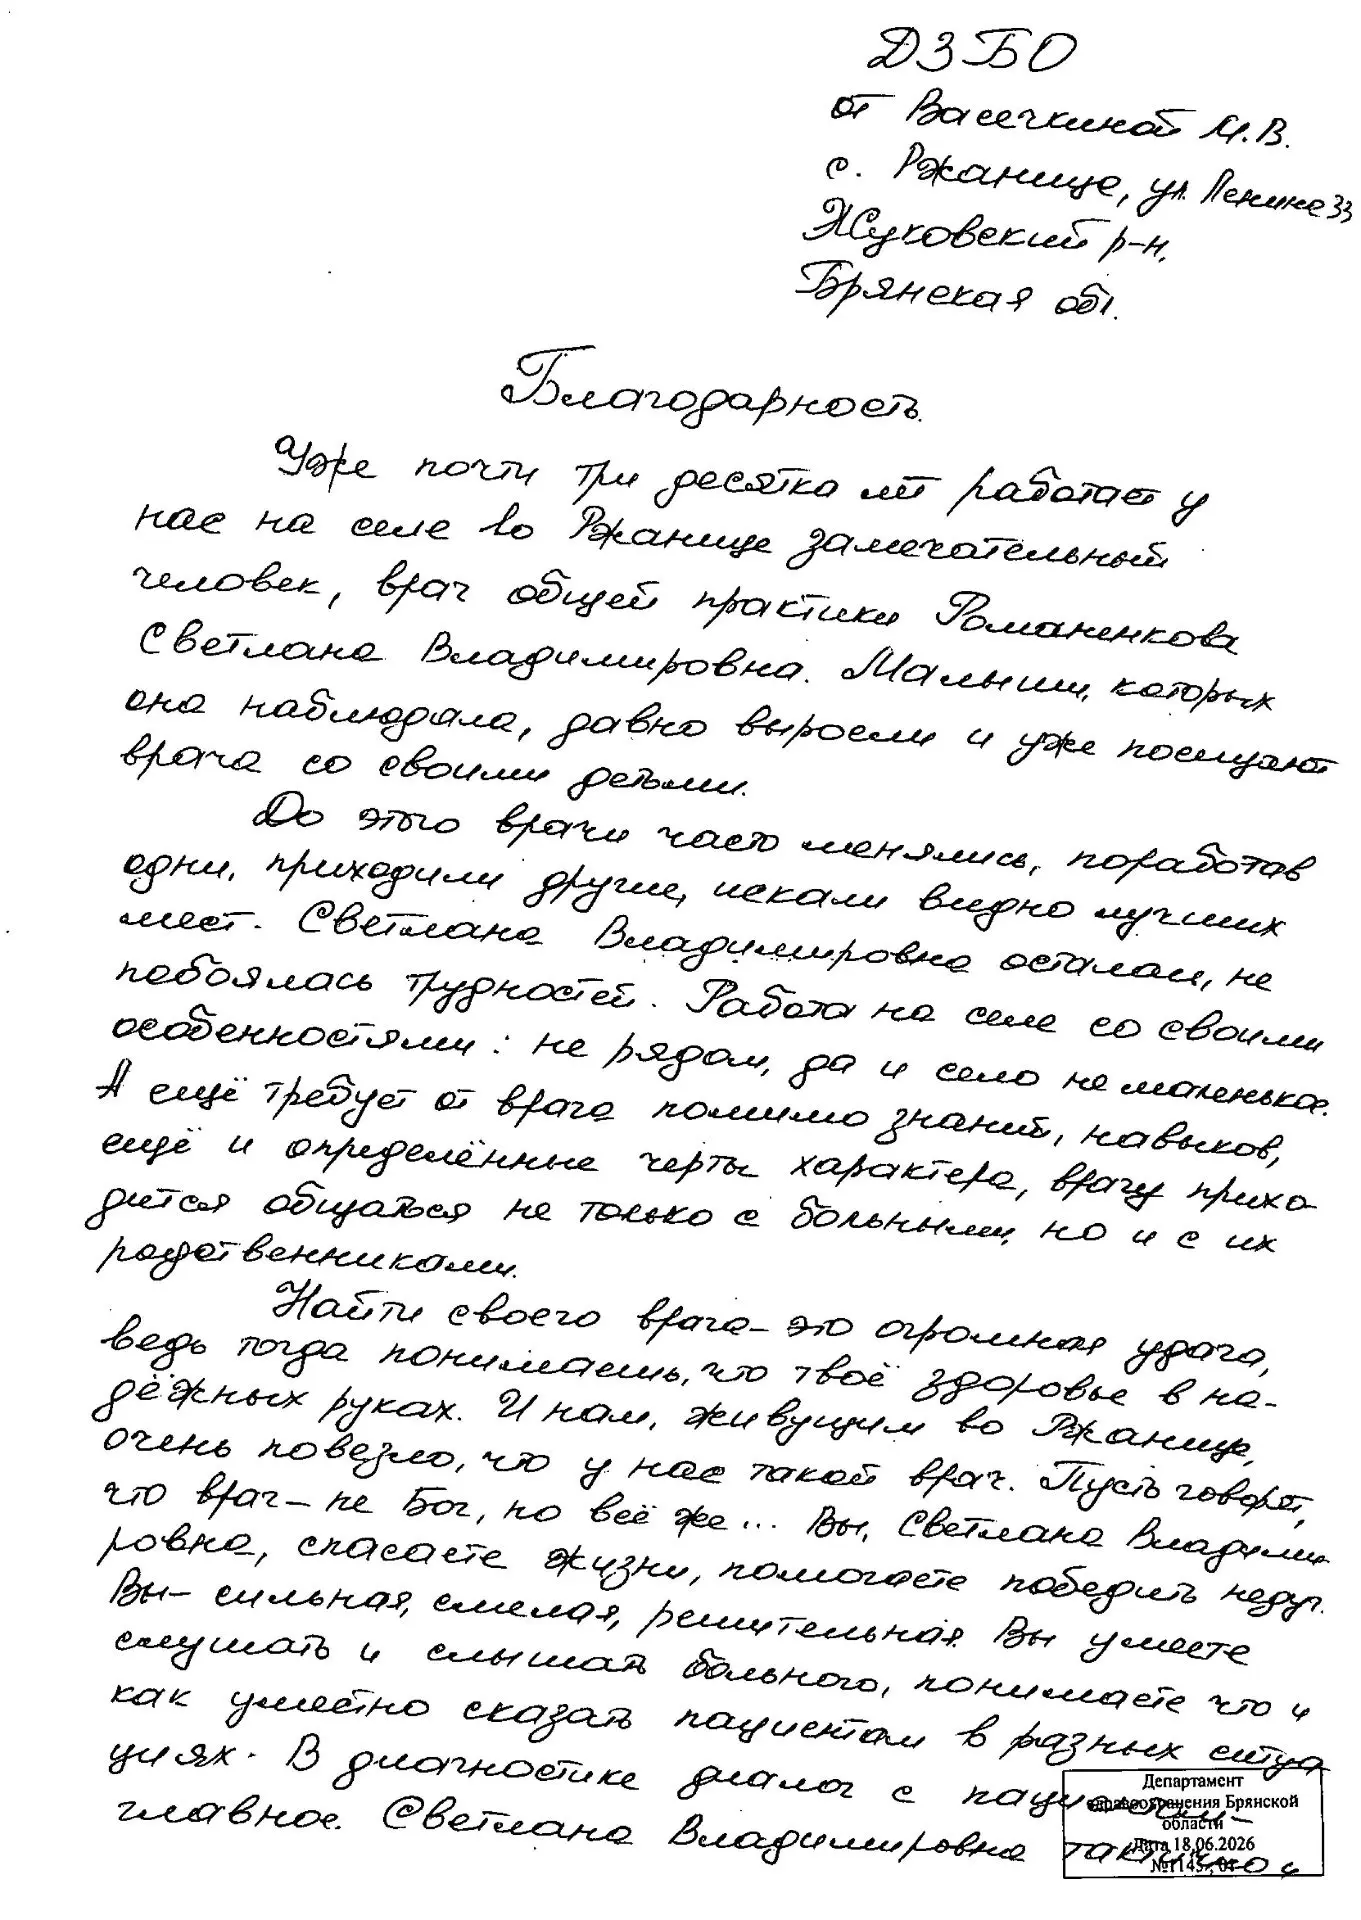 ДЗБО
от Васечкиной М.В.
с. Ржаница, ул. Ленина 33
Жуковский р-н,
Брянская обл.
Благодарность.
Уже почти три десятка лет работает у
нас на селе во Ржанице замечательный
человек, врач общей практики Романенкова
Светлана Владимировна. Малыши, которых
она наблюдала, давно выросли и уже посещают
врача со своими детьми.
До этого врачи часто менялись, поработав
одни, приходили другие, искали видно лучших
мест. Светлана Владимировна осталась, не
побоялась трудностей. Работа на селе со своими
особенностями: не рядом, да и село не маленькое.
А ещё требует от врача помимо знаний, навыков,
ещё и определённые черты характера, врачу прихо-
дится общаться не только с больными, но и с их
родственниками.
Найти своего врача – это огромная удача,
ведь тогда понимаешь, что твоё здоровье в на-
дёжных руках. И нам, живущим во Ржанице,
очень повезло, что у нас такой врач. Пусть говорят,
что врач – не Бог, но всё же... Вы, Светлана Владими-
ровна, спасаете жизни, помогаете победить недуг.
Вы – сильная, смелая, решительная. Вы умеете
слушать и слышать больного, понимаете что и
как уместно сказать пациентам в разных ситуа
циях. В диагностике диалог с пациентами –
главное. Светлана Владимировна тактично и
Департамент
здравоохранения Брянской
области
Дата 18.06.2026